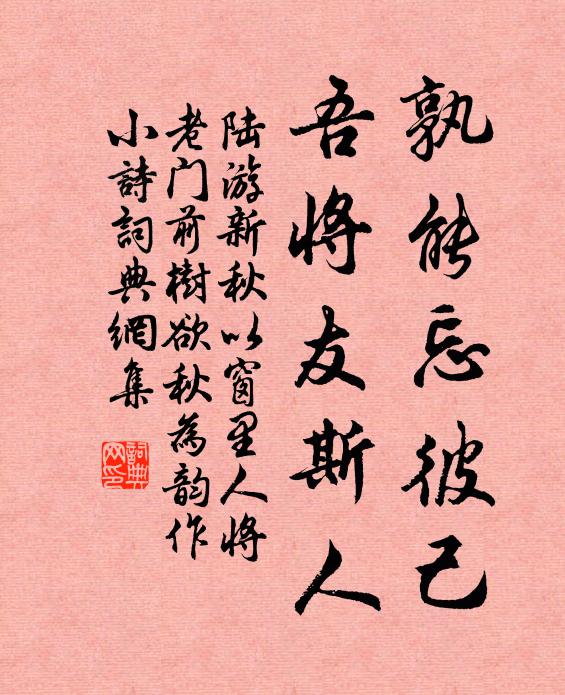 孰能忘彼己
吾将友斯人
陆游新秋以窗里人将
老门前樹欲秋為韵作
小詩詞典網集
詞典
网印